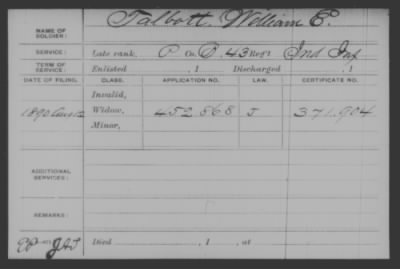 NAME OF SOLDIER: Talbott, William E.
SERVICE: Late rank, P Co. B, 43 Reg't Ind Inf
TERM OF SERVICE: Enlisted , 1 Discharged , 1
DATE OF FILING. CLASS. APPLICATION NO. LAW. CERTIFICATE NO.
Invalid,
1890 Aug 12 Widow, 452 868 J 371.904
Minor,
ADDITIONAL SERVICES:
REMARKS:
Died , 1 , at